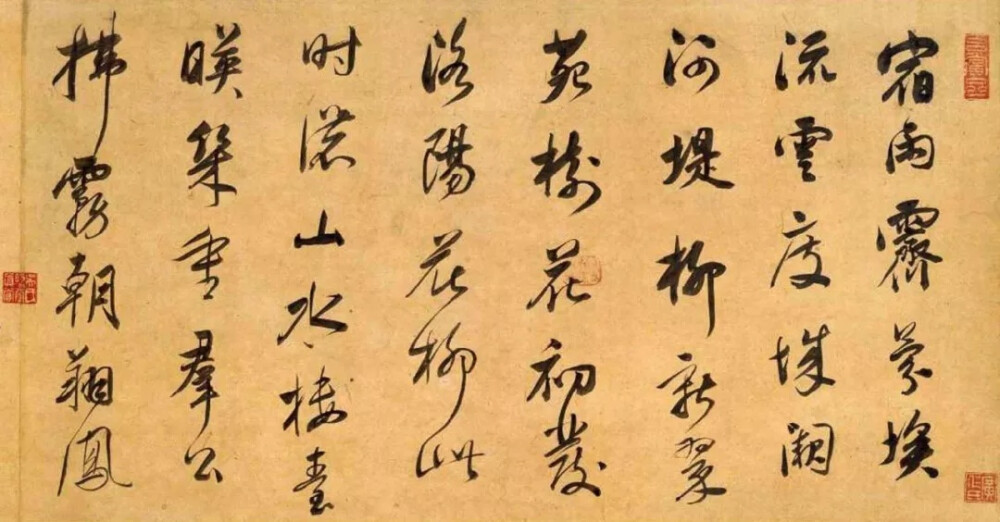 宿雨霽氛埃
流雲度城闕
河堤柳新翠
苑樹花初發
洛陽花柳此
时濃山水樓臺
暎幾重羣公
拂霧朝翔鳳